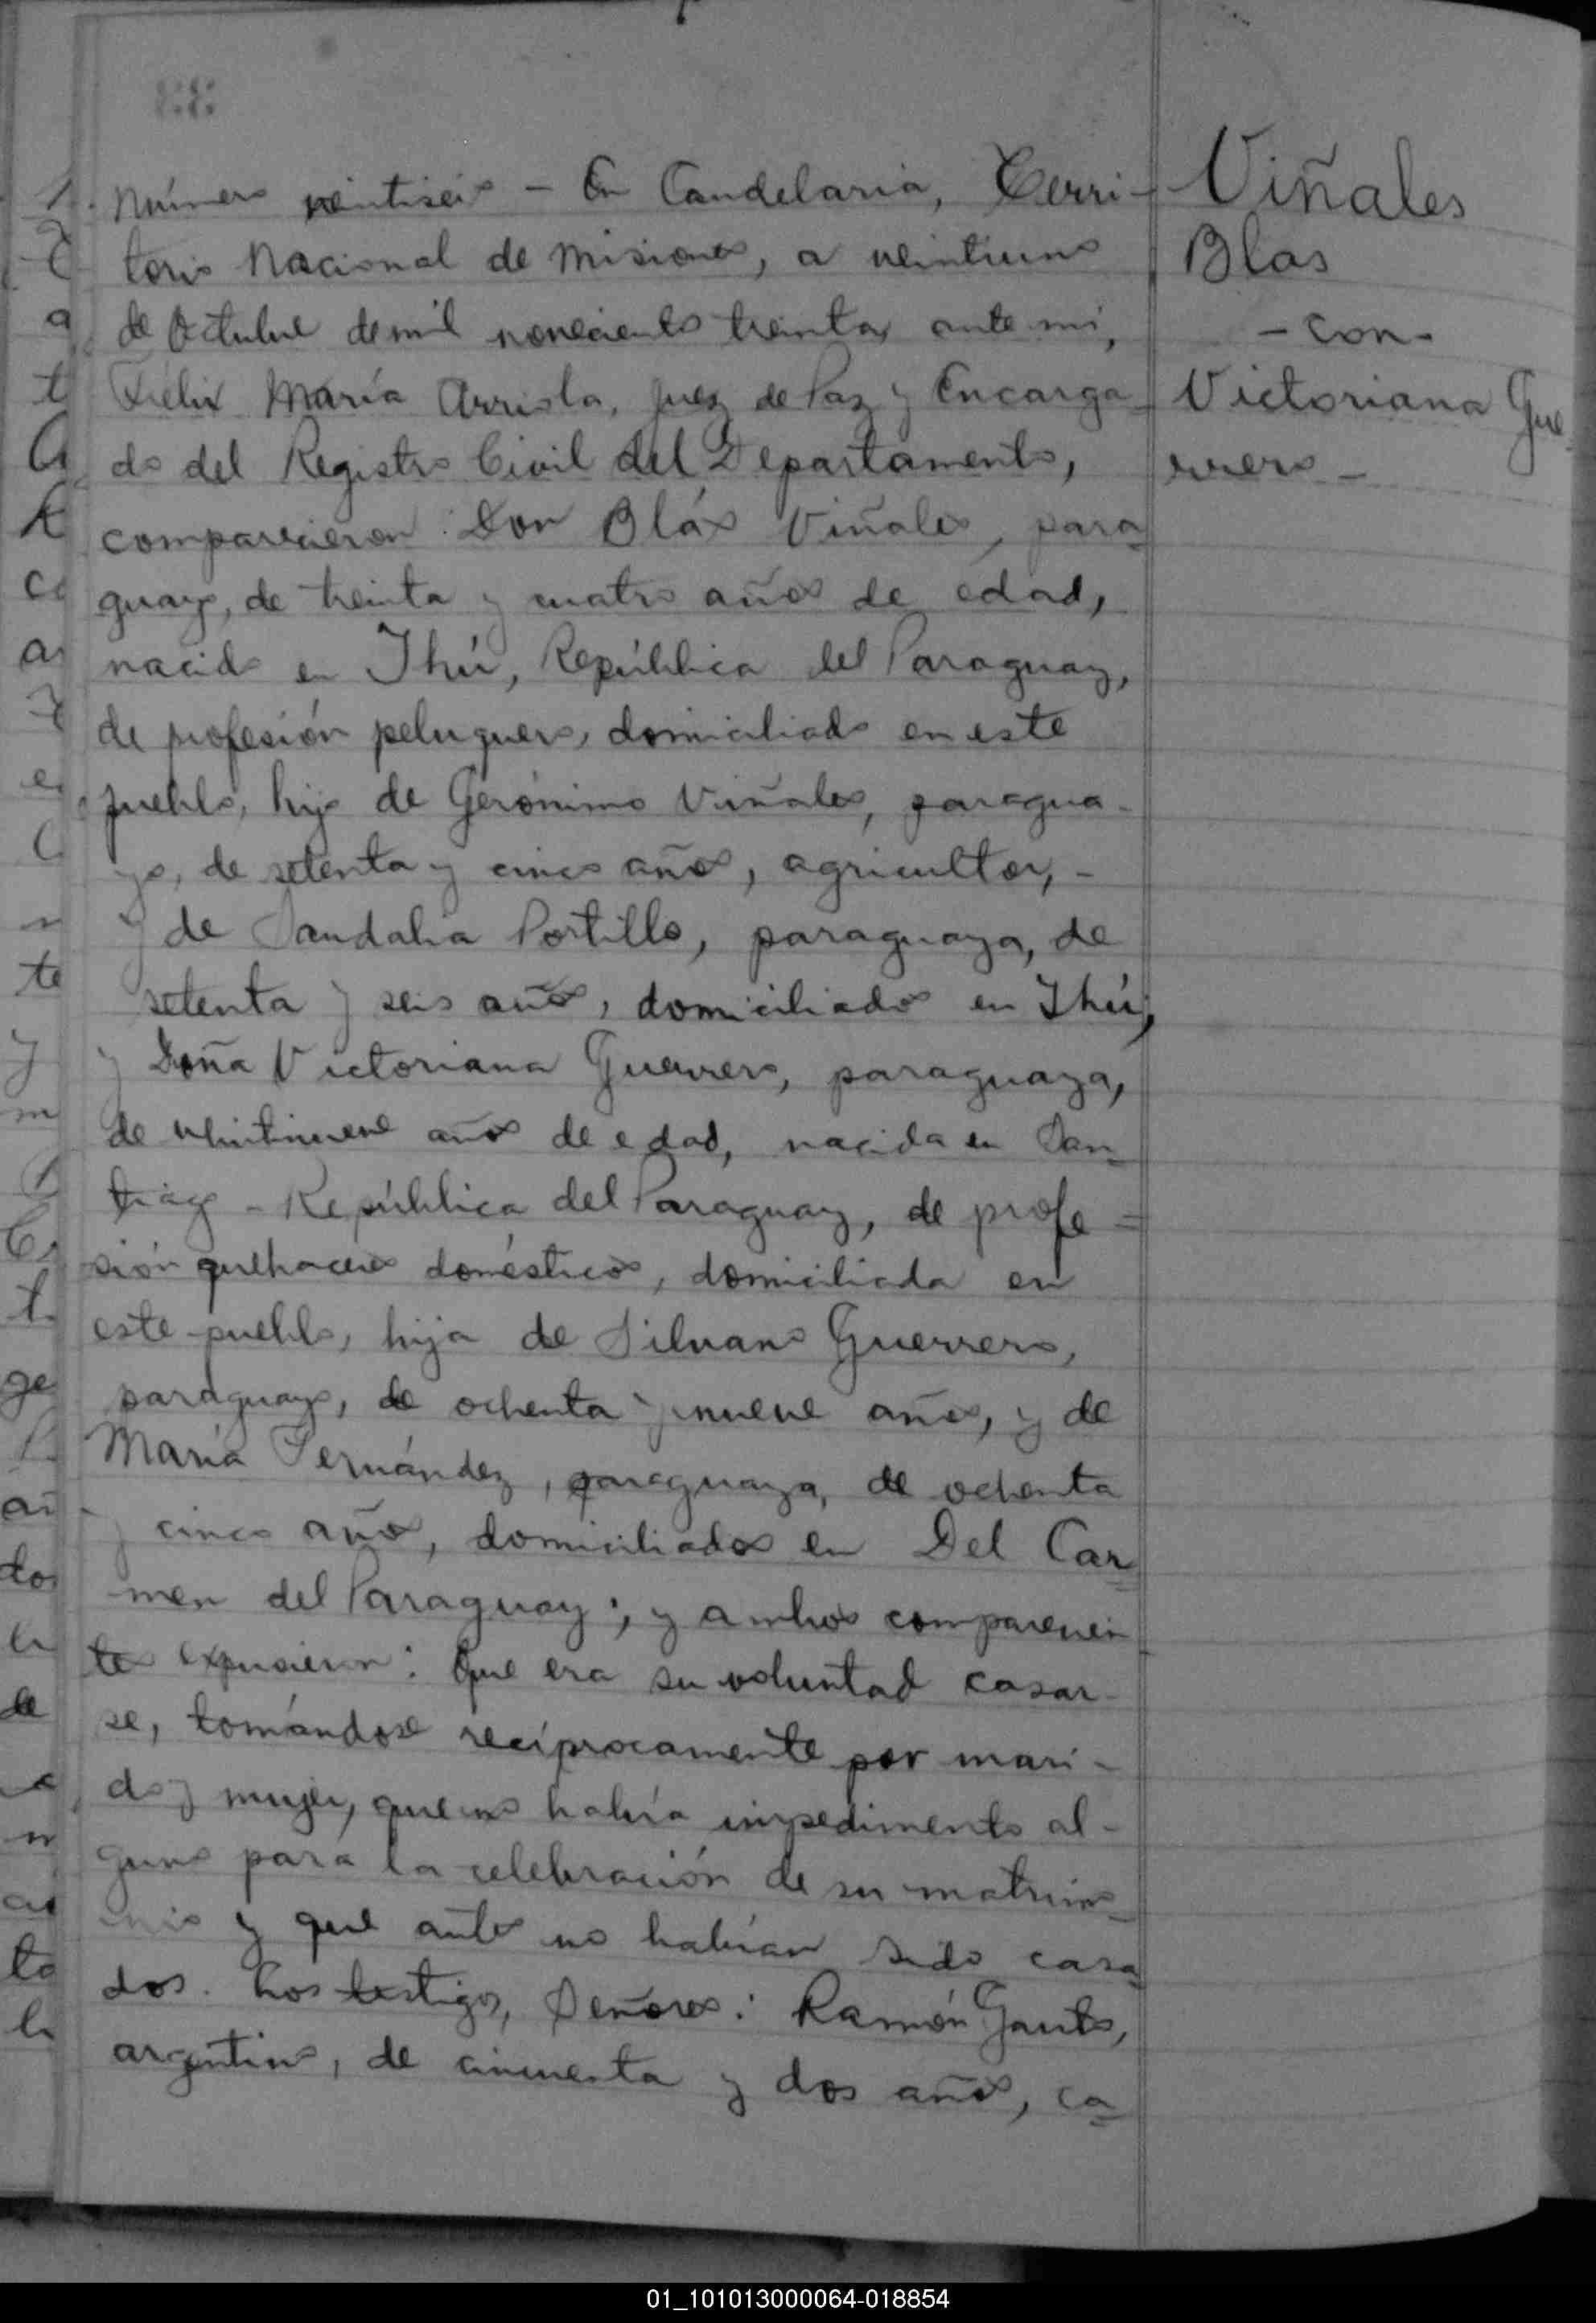 Número veintiseis - En Candelaria, Terri-
torio Nacional de Misiones, a veintiuno
de Octubre de mil novecientos treinta, ante mi,
Félix María Arriola, Juez de Paz y Encarga-
do del Registro Civil del Departamento,
comparecieron: Don Blás Viñales, para-
guayo, de treinta y cuatro años de edad,
nacido en Ihú, República del Paraguay,
de profesión peluquero, domiciliado en este
pueblo, hijo de Gerónimo Viñales, paragua-
yo, de setenta y cinco años, agricultor, -
y de Sandalia Portillo, paraguaya, de
setenta y seis años, domiciliados en Ihú;
y Doña Victoriana Guerrero, paraguaya,
de veintinueve años de edad, nacida en San-
tiago - República del Paraguay, de profe=
sión quehaceres domésticos, domiciliada en
este pueblo, hija de Silvano Guerrero,
paraguayo, de ochenta y nueve años, y de
María Fernández, paraguaya, de ochenta
y cinco años, domiciliados en Del Car-
men del Paraguay; y ambos comparecien-
tes expusieron: Que era su voluntad casar-
se, tomándose recíprocamente por mari-
do y mujer, que no había impedimento al-
guno para la celebración de su matrimo-
nio y que antes no habían sido casa-
dos. Los testigos, Señores: Ramón Gauto,
argentino, de cincuenta y dos años, ca=
Viñales
Blas
- con -
Victoriana Gue-
rrero -
01_101013000064-018854